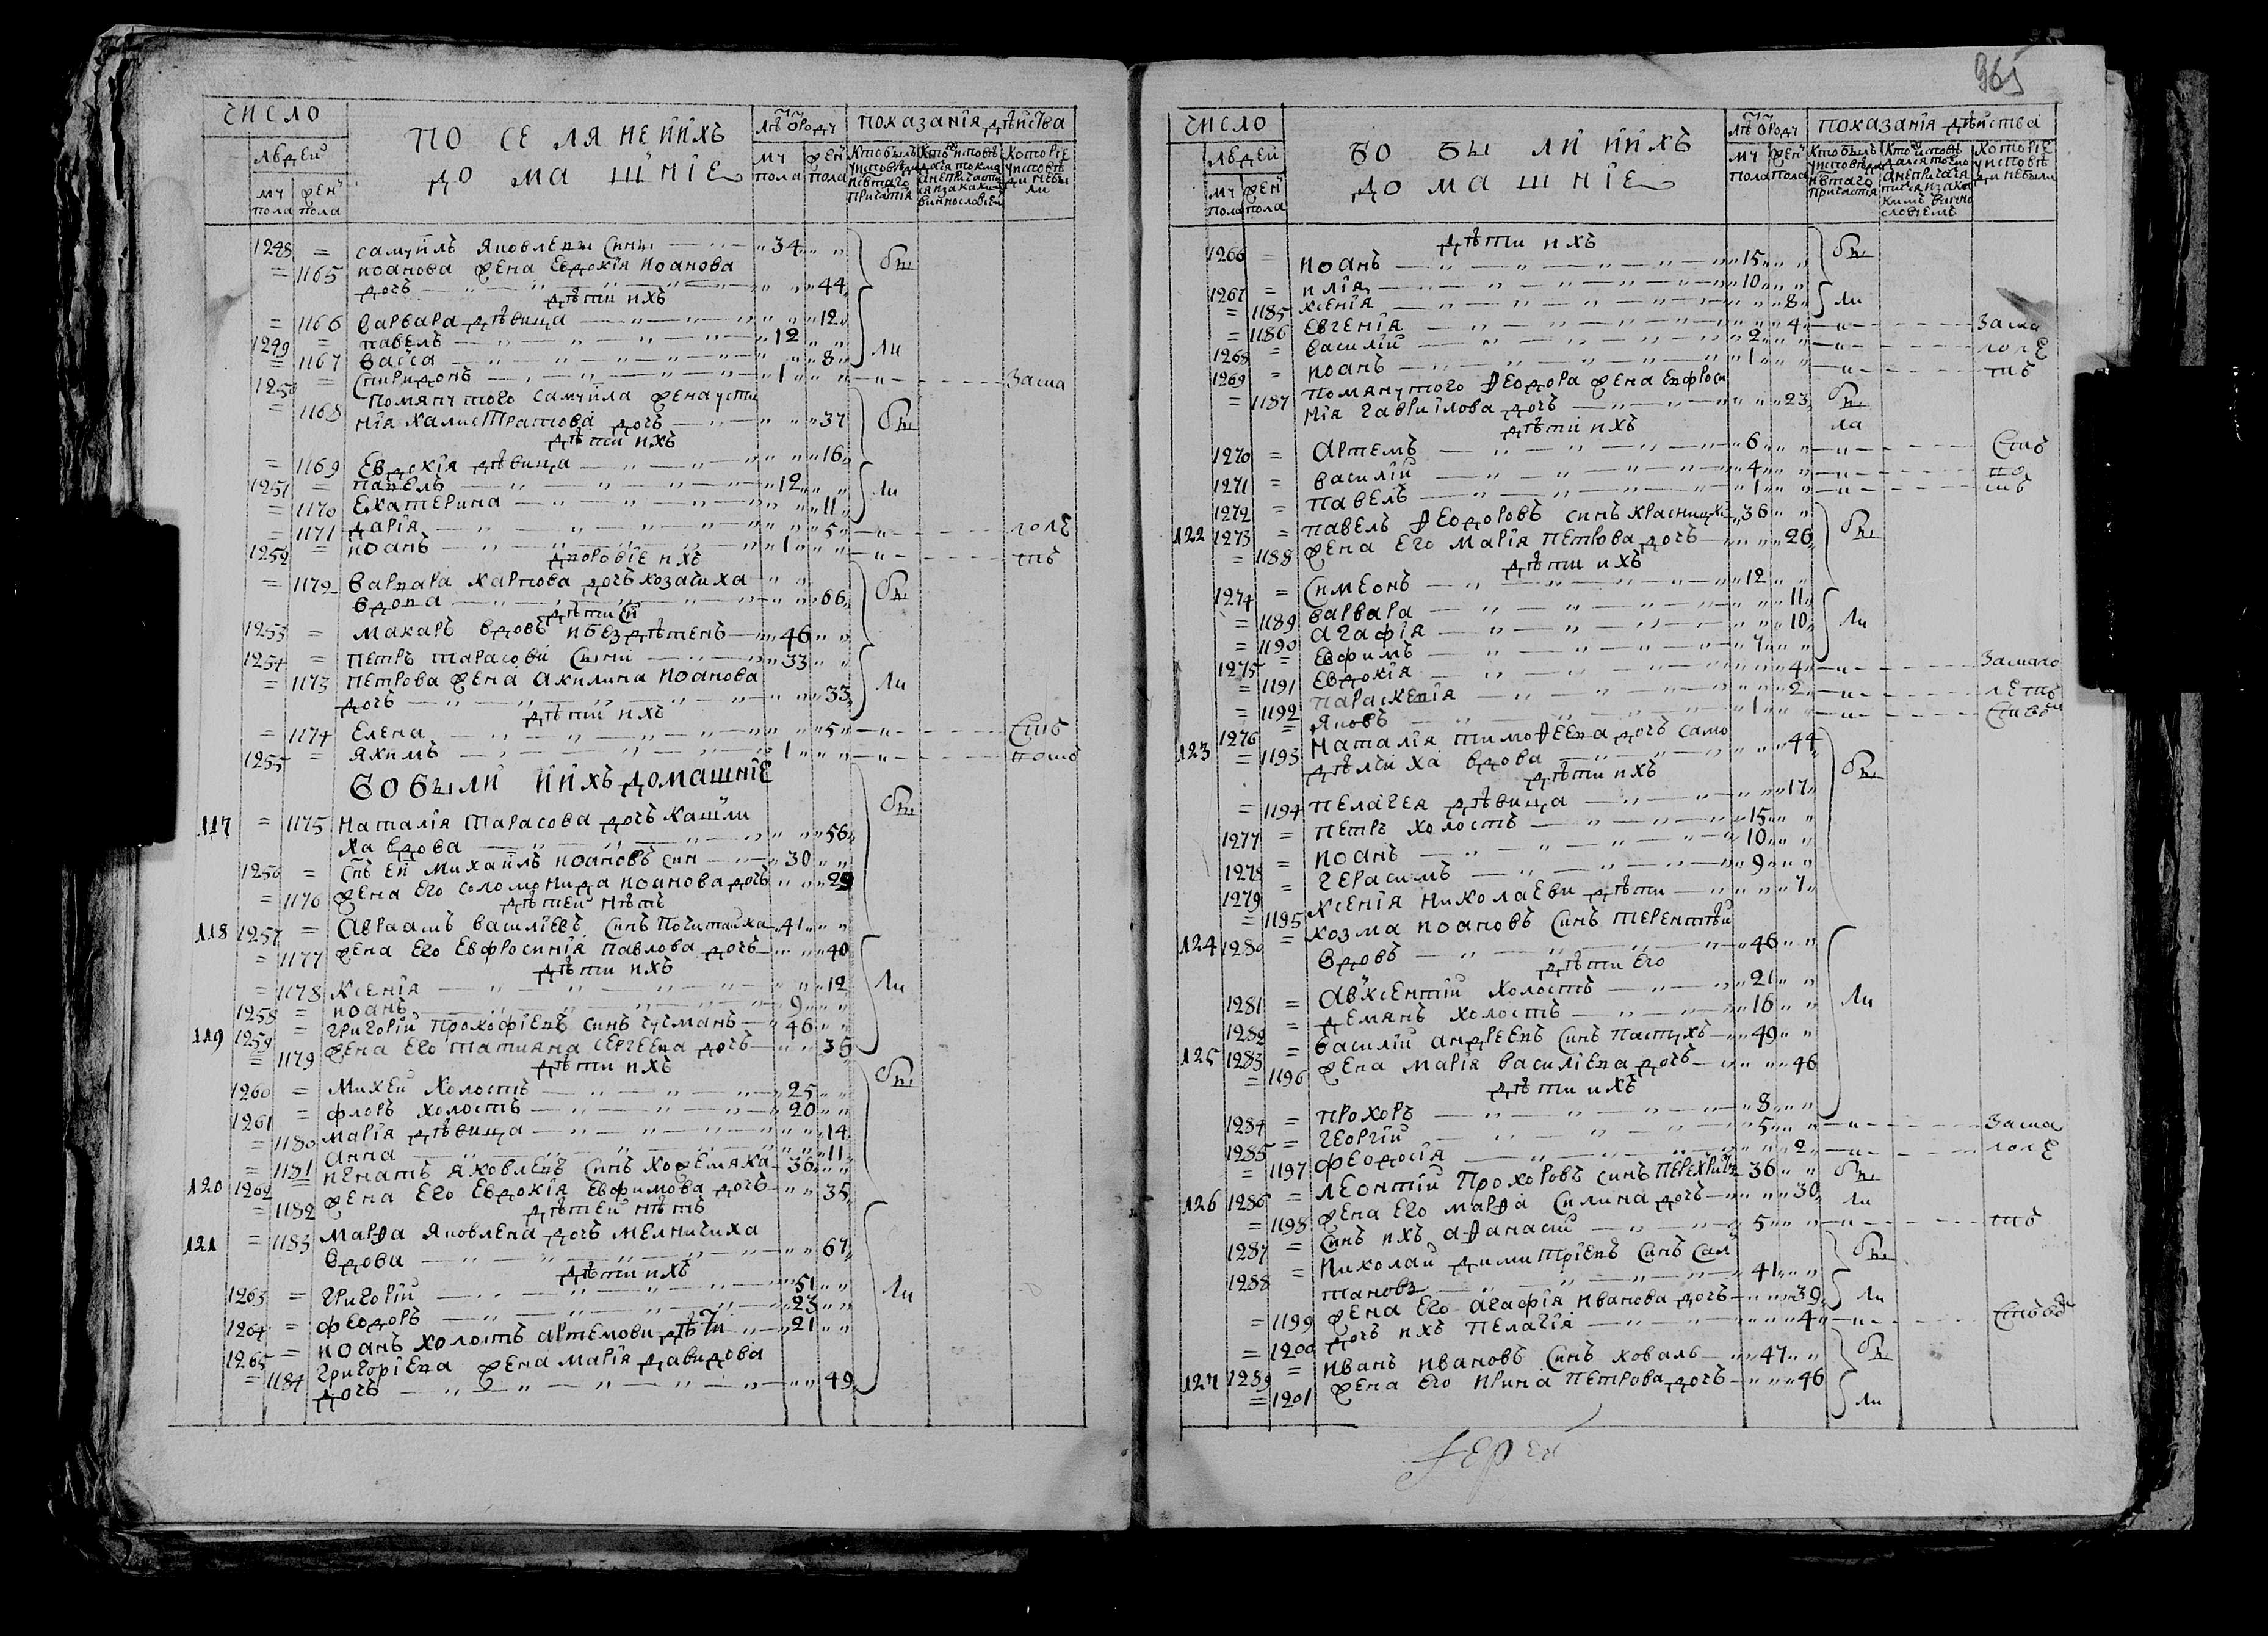 ЧИСЛО
ПО СЕ ЛЯ НЕ ЙИХЪ
ДО МА ШНІЕ
ПОКАЗАНІЯ ДѢЙСТВА
Людей
мү пола
жен пола
мү пола
жен пола
1248 = самүйлъ Яковлевы Сины 34
= 1165 иоанова жена Евдокія Иоанова
дочъ 44
Дѣти ихъ
= 1166 варвара дѣвица 12
1249 = павелъ 12
= 1167 васса 8 ли
1250 = Спиридонъ 1 Зама
Помянутого самүйла жена үсти
= 1168 нія Халистратова дочъ 37
Дѣти ихъ
= 1169 Евдокія дѣвица 16
1251 = павелъ 12 ли
= 1170 Екатерина 11
= 1171 дарія 5 лолѣ
1252 = иоанъ 1 тъ
Дворовіе ихъ
= 1172 варвара Карпова дочъ козачиха
вдова 66
дѣти Ей
1253 = макаръ вдовъ и безъдѣтенъ 46
1254 = петръ тарасовы Сыны 33
= 1173 петрова жена акилина Иоанова
дочъ 33 ли
дѣти ихъ
= 1174 Елена 5
1255 = якимъ 1
БОБЫЛИ ЙИХЪ ДОМАШНІЕ
117 = 1175 Наталія Тарасова дочъ кашли
ха вдова 56
1256 = Снъ Ей Михайлъ иоановъ син 30
= 1176 жена Его соломонида иоанова дочъ 29
дѣтей нѣтъ
118 1257 = авраамъ василіевъ Синъ 41
= 1177 жена Его Евфросинія павлова дочъ 40
дѣти ихъ
= 1178 Ксенія 12 ли
1258 = иоанъ 9
119 1259 = григорій прокофіевъ Синъ гүсманъ 46
= 1179 жена Его татияна сергеева дочъ 35
дѣти ихъ
1260 = Михей холостъ 25
1261 = флоръ холостъ 20
= 1180 марія дѣвица 14
= 1181 анна 11
120 1262 = игнатъ яковлевъ Синъ хожемяка 36
= 1182 жена Его Евдокія Евфимова дочъ 35
дѣтей нѣтъ
121 = 1183 марѳа Яковлева дочъ мелничиха
вдова 67
дѣти ихъ
1263 = григорій 51 ли
1264 = феодоръ 23
1265 = иоанъ холостъ артемови дѣти 21
= 1184 григоріева жена марія давидова
дочъ 49
965
ЧИСЛО
БО БЫ ЛИ ЙИХЪ
ДО МА ШНІЕ
ПОКАЗАНІЯ ДѢЙСТВА
Людей
мү пола
жен пола
мү пола
жен пола
дѣти ихъ
1266 = иоанъ 15
1267 = илія 10
= 1185 ксенія 8 ли
= 1186 евгенія 4 Зама
1268 = василій 2 лолѣ
1269 = иоанъ 1 тъ
помянутого Ѳеодора жена Евфроси
= 1187 нія гавриілова дочъ 23
дѣти ихъ
ла
1270 = артемъ 6
1271 = василій 4
1272 = павелъ 1
122 1273 = павелъ Ѳеодоровъ синъ 36
= 1188 жена Его марія петрова дочъ 26
дѣти ихъ
1274 = Симеонъ 12
= 1189 варвара 11
= 1190 агафія 10 ли
1275 = Евфимъ 7
= 1191 Евдокія 4 Замало
= 1192 параскевія 2 лѣтъ
1276 = яковъ 1
123 = 1193 наталія тимоѳеева дочъ само
дѣлиха вдова 44
дѣти ихъ
= 1194 пелагея дѣвица 17
1277 = петръ холостъ 15
1278 = иоанъ 10
1279 = герасимъ 9
= 1195 ксенія николаеви дѣти 7
124 1280 = козма иоановъ Синъ
вдовъ 46
дѣти Его
1281 = авксентій холостъ 21 ли
1282 = демянъ холостъ 16
125 1283 = василій андреевъ Синъ пастүхъ 49
= 1196 жена марія василіева дочъ 46
дѣти ихъ
1284 = прохоръ 8
1285 = георгій 5 Зама
= 1197 феодосія 2 лолѣ
126 1286 = леонтій прохоровъ синъ 36
= 1198 жена Его марѳа Силина дочъ 30 ли
1287 = Синъ ихъ аѳанасій 5 тъ
1288 = Николай димитріевъ Синъ Сал
тановъ 41
= 1199 жена Его агафія иванова дочъ 39 ли
= 1200 дочъ ихъ пелагія 4
127 1289 = иванъ ивановъ Синъ коваль 47
= 1201 жена Его ирина петрова дочъ 46 ли